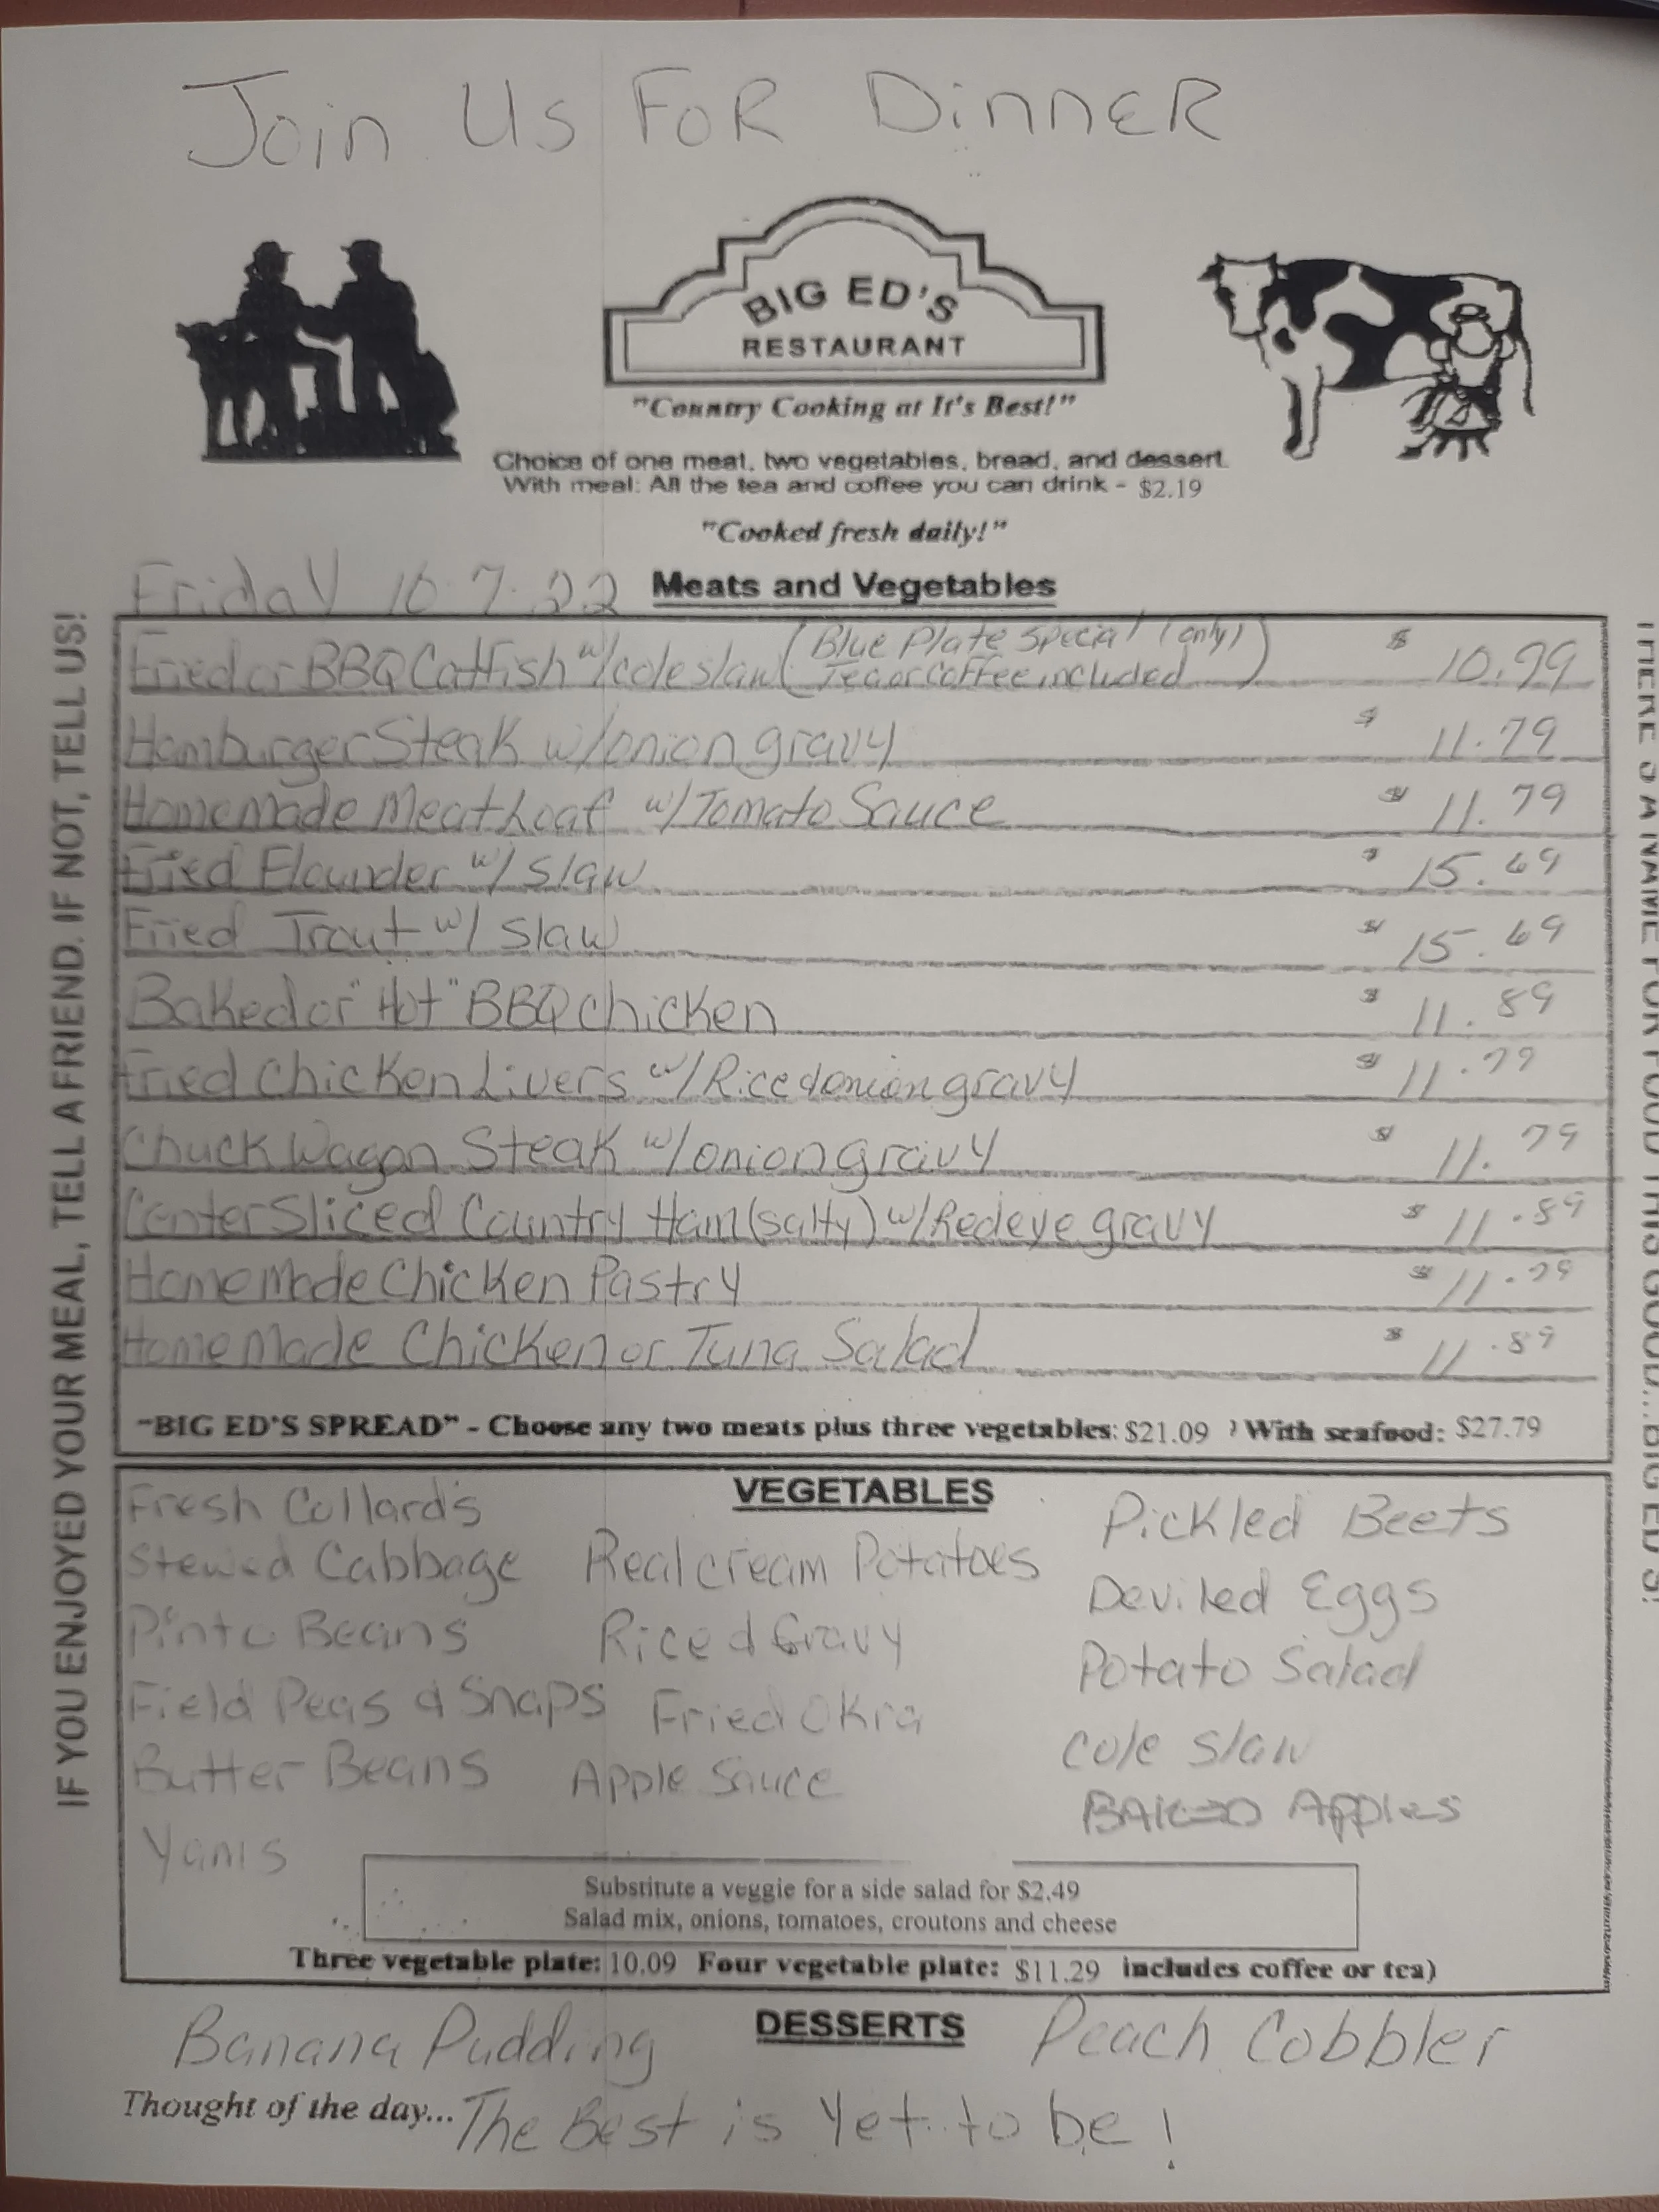 Join Us FOR DinnER
BIG ED'S
RESTAURANT
"Country Cooking at It's Best!"
Choice of one meat, two vegetables, bread, and dessert.
With meal: All the tea and coffee you can drink - $2.19
"Cooked fresh daily!"
Friday 10-7-22 Meats and Vegetables
Fried or BBQ Catfish w/coleslaw (Blue Plate Special (only) Tea or Coffee included) $ 10.99
Hamburger Steak w/onion gravy $ 11.79
HomeMade Meat Loaf w/Tomato Sauce $ 11.79
Fried Flounder w/ Slaw $ 15.69
Fried Trout w/ Slaw $ 15.69
Baked or "Hot" BBQ chicken $ 11.89
Fried Chicken Livers w/Rice & onion gravy $ 11.79
Chuck Wagon Steak w/onion gravy $ 11.79
Center Sliced Country Ham (salty) w/Redeye gravy $ 11.89
HomeMade Chicken Pastry $ 11.79
HomeMade Chicken or Tuna Salad $ 11.89
"BIG ED'S SPREAD" - Choose any two meats plus three vegetables: $21.09 ) With seafood: $27.79
VEGETABLES
Fresh Collards
Stewed Cabbage
Pinto Beans
Field Peas & Snaps
Butter Beans
Yams
Real cream Potatoes
Rice & Gravy
Fried Okra
Apple Sauce
Pickled Beets
Deviled Eggs
Potato Salad
Cole Slaw
BAKED Apples
Substitute a veggie for a side salad for $2.49
Salad mix, onions, tomatoes, croutons and cheese
Three vegetable plate: 10.09 Four vegetable plate: $11.29 includes coffee or tea)
DESSERTS
Banana Pudding
Peach Cobbler
Thought of the day... The Best is Yet to be!
IF YOU ENJOYED YOUR MEAL, TELL A FRIEND. IF NOT, TELL US!
THERE'S A NAME FOR FOOD THIS GOOD...BIG ED'S!